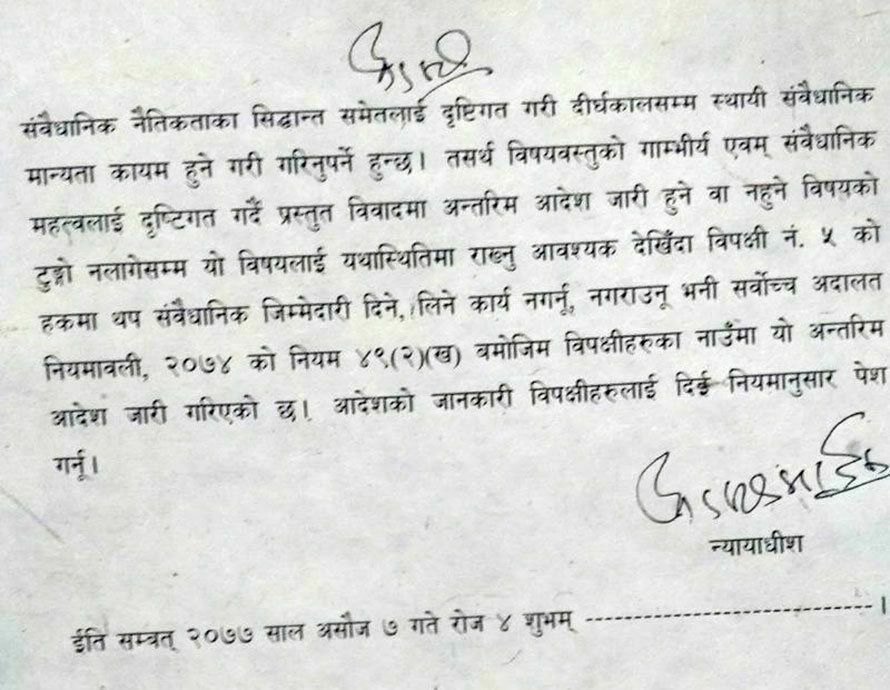 संवैधानिक नैतिकताका सिद्धान्त समेतलाई दृष्टिगत गरी दीर्घकालसम्म स्थायी संवैधानिक
मान्यता कायम हुने गरी गरिनुपर्ने हुन्छ। तसर्थ विषयवस्तुको गाम्भीर्य एवम् संवैधानिक
महत्वलाई दृष्टिगत गर्दै प्रस्तुत विवादमा अन्तरिम आदेश जारी हुने वा नहुने विषयको
टुङ्गो नलागेसम्म यो विषयलाई यथास्थितिमा राख्नु आवश्यक देखिँदा विपक्षी नं. ५ को
हकमा थप संवैधानिक जिम्मेदारी दिने, लिने कार्य नगर्नू, नगराउनू भनी सर्वोच्च अदालत
नियमावली, २०७४ को नियम ४९(२)(ख) बमोजिम विपक्षीहरुका नाउँमा यो अन्तरिम
आदेश जारी गरिएको छ। आदेशको जानकारी विपक्षीहरुलाई दिई नियमानुसार पेश
गर्नू।
न्यायाधीश
ईति सम्वत् २०७७ साल असौज ७ गते रोज ४ शुभम् ------------------------------।